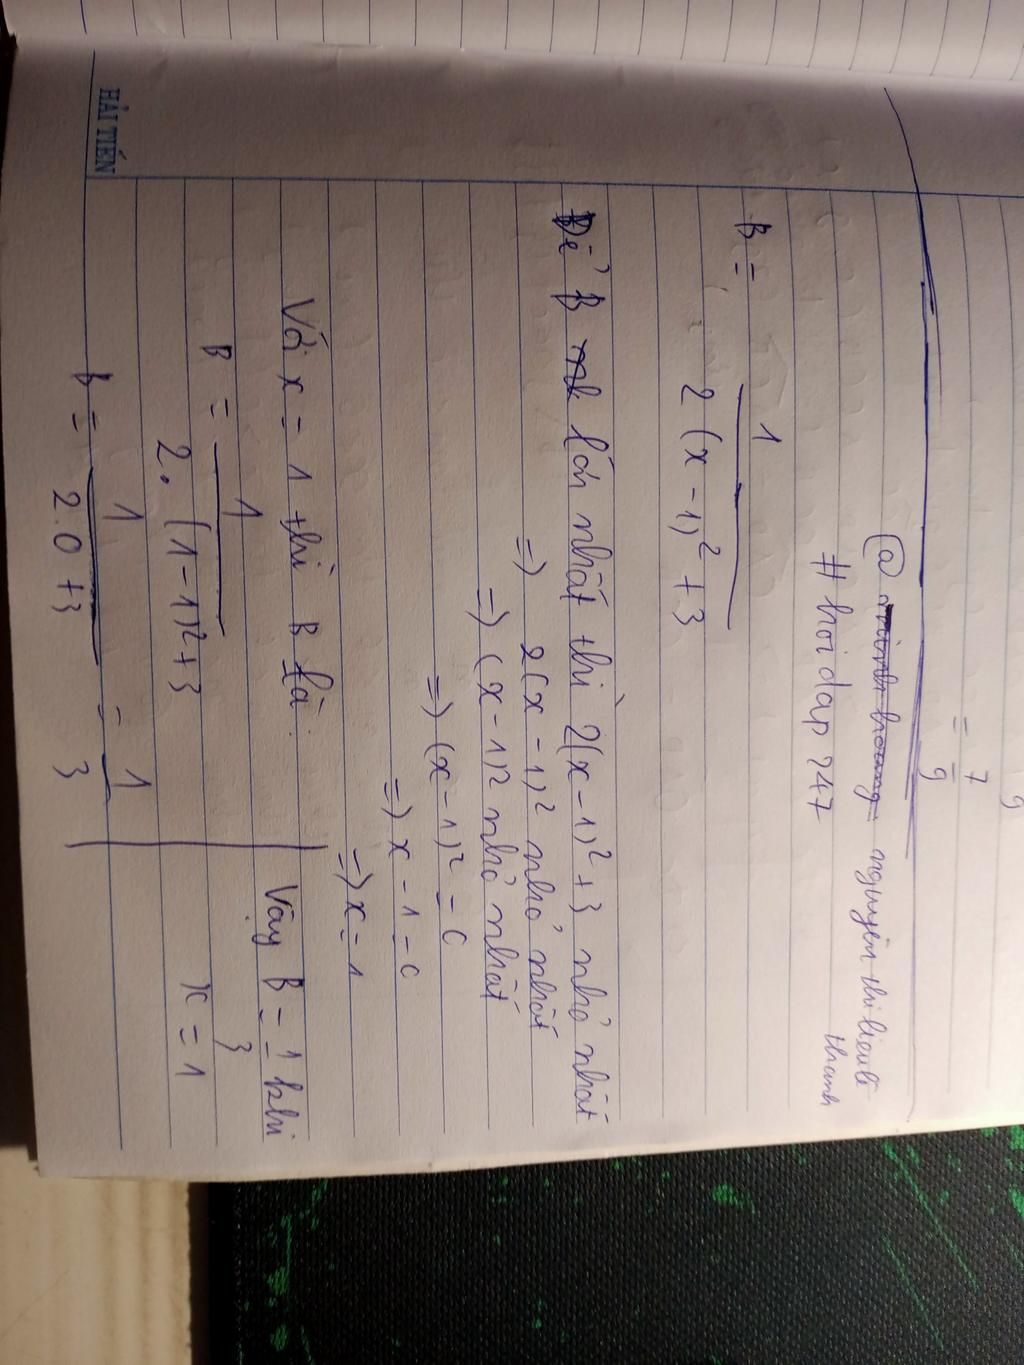 9
= 7/9
@ nguyễn thị liên
thanh
# hoidap 247
B = 1 / 2(x - 1)² + 3
Để B lớn nhất thì 2(x - 1)² + 3 nhỏ nhất
=) 2(x - 1)² nhỏ nhất
=) (x - 1)² nhỏ nhất
=) (x - 1)² = 0
=) x - 1 = 0
=) x = 1
Với x = 1 thì B là:
B = 1 / 2.(1 - 1)² + 3
B = 1 / 2.0 + 3 = 1/3
Vậy B = 1/3 khi
x = 1
HẢI TIẾN